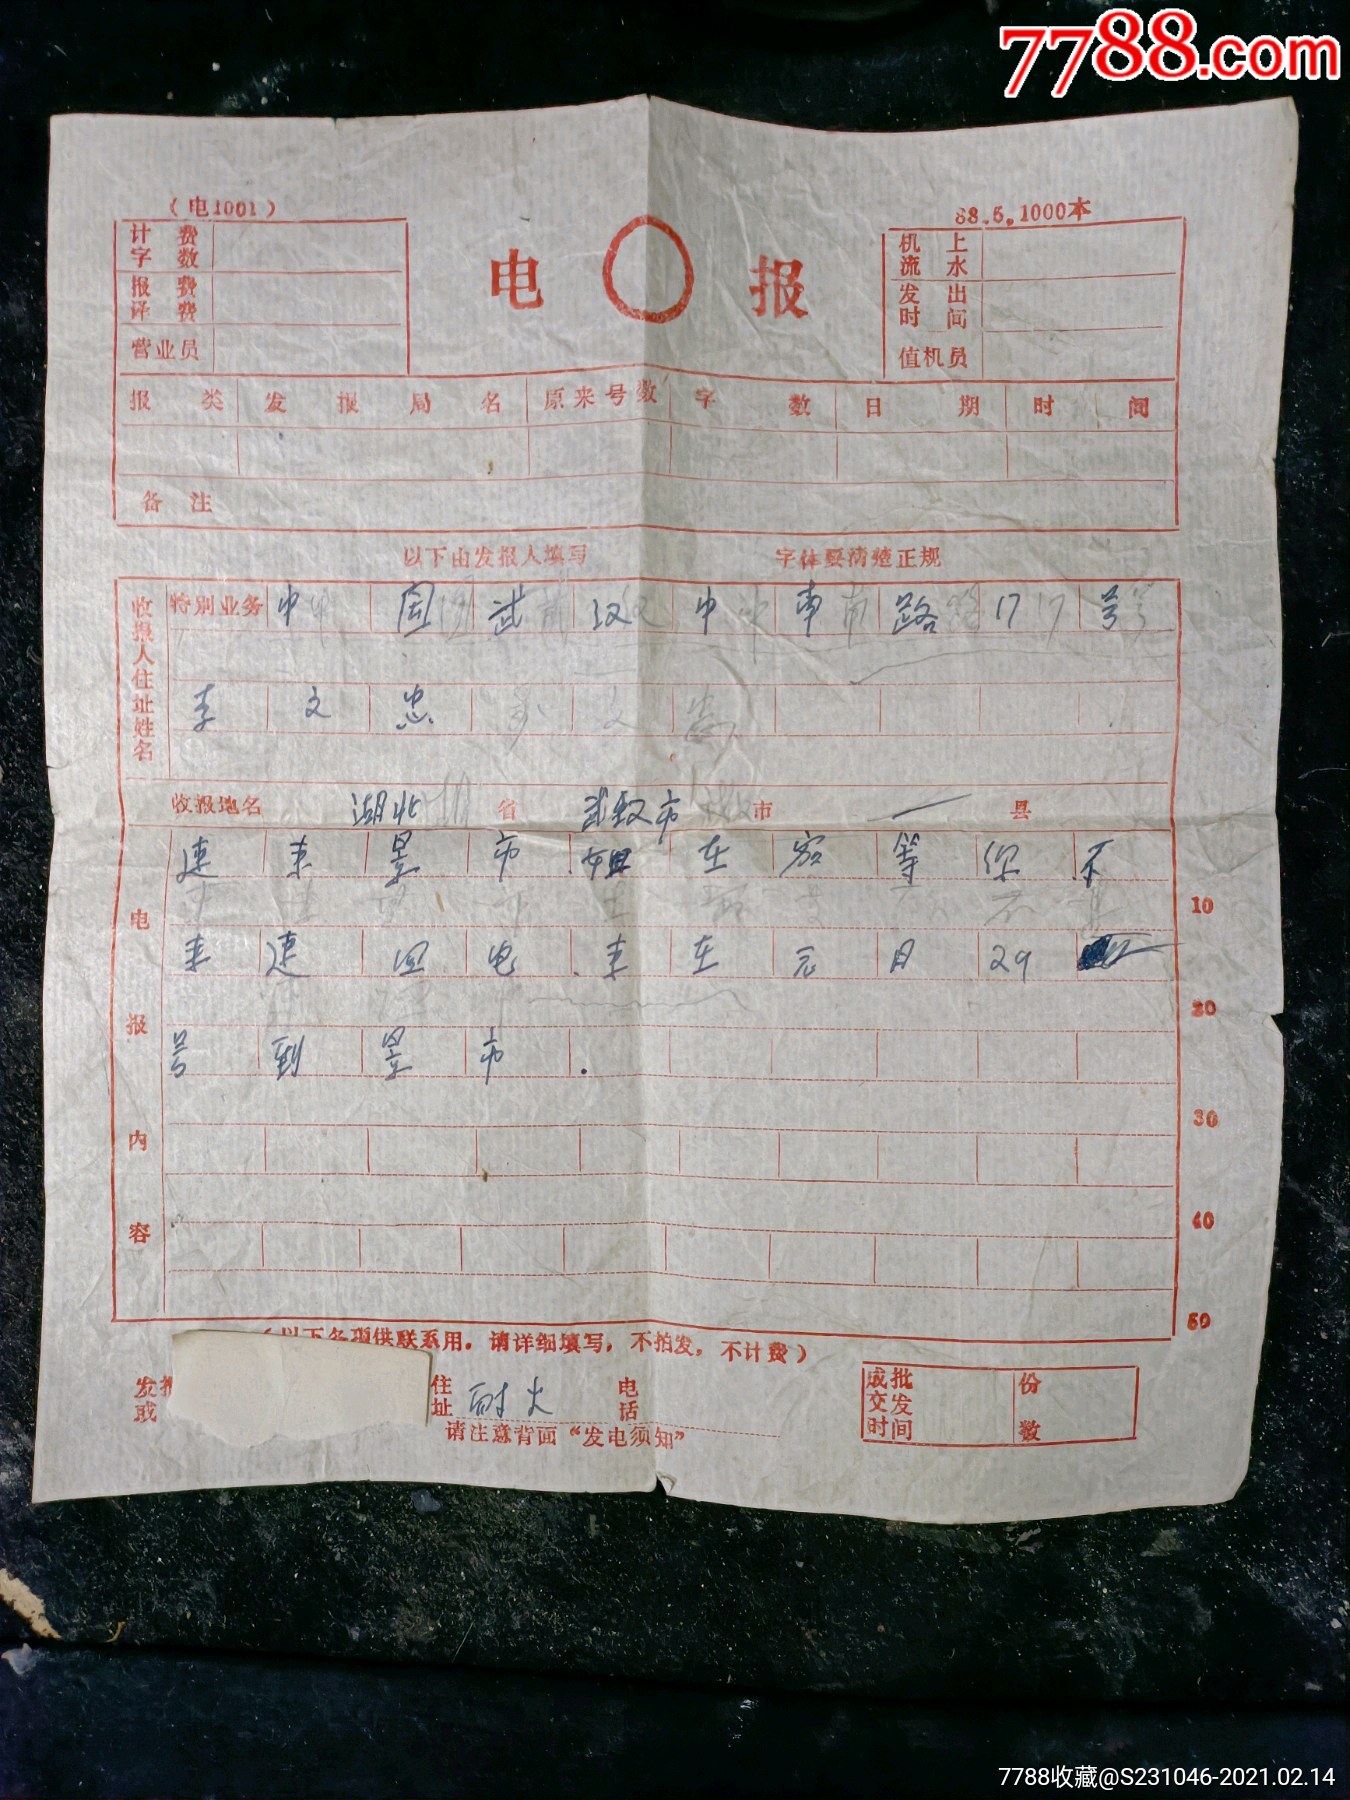 7788.com
（电1001）
88.5.1000本
计费字数
报费译费
营业员
电报
机上流水
发出时间
值机员
报类 发报局名 原来号数 字数 日期 时间
备注
以下由发报人填写 字体要清楚正规
收报人住址姓名
特别业务 中国武汉中南路17号
李文忠
收报地名 湖北省 武汉市 市 一 县
电报内容
速来昱市 姐在家等你 不
10
来速回电 来在元月29
20
号到昱市.
30
40
50
（以下各项供联系用，请详细填写，不拍发，不计费）
发报
或
住址 耐火 电话
请注意背面“发电须知”
成批交发时间 份数
7788收藏@S231046-2021.02.14